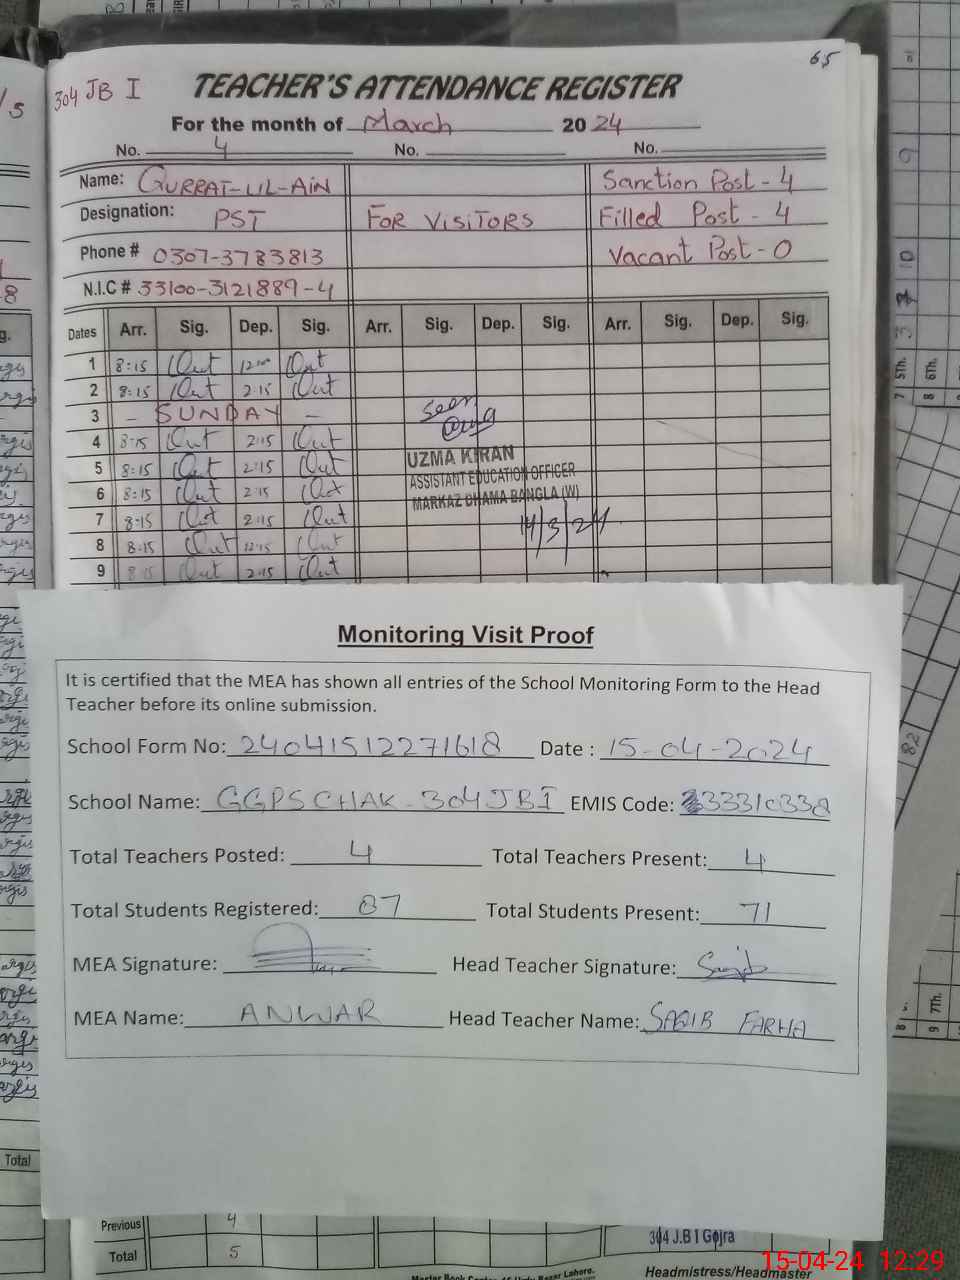 65
304 JB I TEACHER'S ATTENDANCE REGISTER
For the month of March 2024
No. 4 No. No.
Name: QURRAT-UL-AIN Sanction Post - 4
Designation: PST FOR VISITORS Filled Post - 4
Phone # 0307-3783813 Vacant Post - 0
N.I.C # 33100-3121889-4
Dates Arr. Sig. Dep. Sig. Arr. Sig. Dep. Sig. Arr. Sig. Dep. Sig.
1 8:15
2 8:15 2:15
3 - SUNDAY -
4 8:15 2:15
5 8:15 2:15
6 8:15 2:15
7 8:15 2:15
8 8:15 12:15
9 8:15 2:15
Seen
UZMA KIRAN
ASSISTANT EDUCATION OFFICER
MARKAZ DHAMA BANGLA (W)
14/3/24
Monitoring Visit Proof
It is certified that the MEA has shown all entries of the School Monitoring Form to the Head
Teacher before its online submission.
School Form No: 24041512271618 Date : 15-04-2024
School Name: GGPS CHAK-304 JB I EMIS Code: 33310338
Total Teachers Posted: 4 Total Teachers Present: 4
Total Students Registered: 87 Total Students Present: 71
MEA Signature: Head Teacher Signature:
MEA Name: ANWAR Head Teacher Name: SAQIB FARHA
Total
Previous 4
Total 5
304 J.B I Gojra
Headmistress/Headmaster
15-04-24 12:29